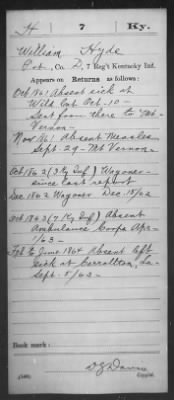 H 7 Ky.
William Hyde
Pvt., Co. D, 7 Reg't Kentucky Inf.
Appears on Returns as follows:
Oct 1861 Absent sick at
Wild Cat Oct. 10 -
Sent from there to Mt.
Vernon -
Nov 1861 Absent Measles
Sept. 29 - Mt Vernon
Oct 1862 (3 Ky Inf) Wagoner -
since last report
Dec 1862 Wagoner Dec. 15/62
Oct 1863 (7 Ky Inf) Absent
Ambulance Corps Apr
1/63 -
Feb to June 1864 Absent left
sick at Carrollton, La
Sept. 5/63 -
Book mark:
(546)
Copyist.